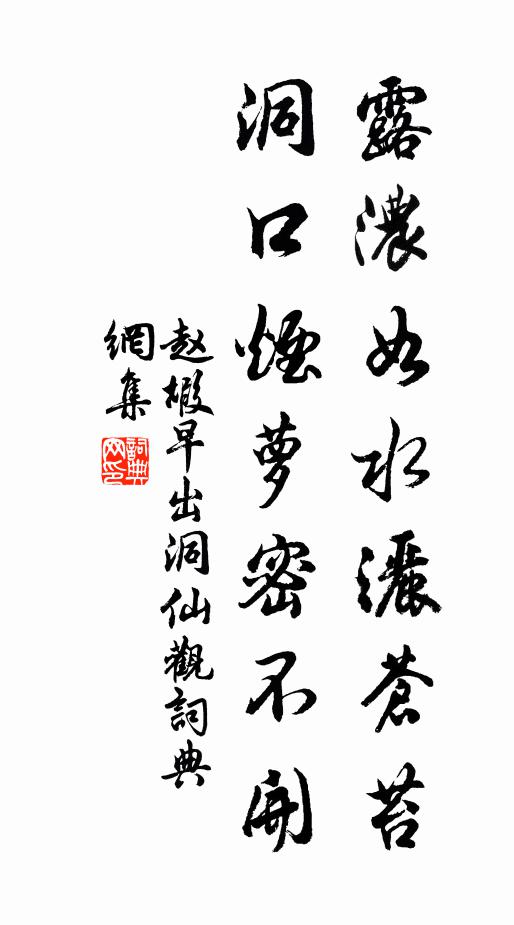 露濃如水灑蒼苔
洞口煙夢密不開
赵嘏早出洞仙觀詞典
網集
詞典
网印